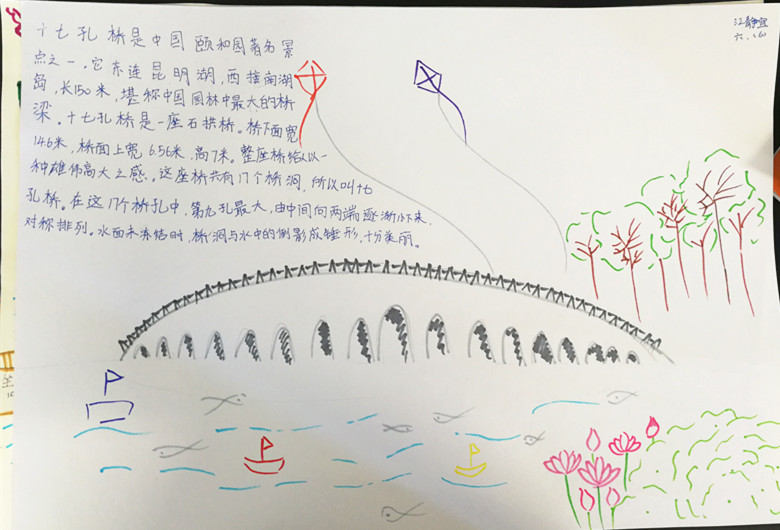 十七孔桥是中国颐和园著名景
点之一，它东连昆明湖，西接南湖
岛，长150米，堪称中国园林中最大的桥
梁。十七孔桥是一座石拱桥。桥下面宽
14.6米，桥面上宽6.56米，高7米。整座桥给以以一
种雄伟高大之感。这座桥共有17个桥洞，所以叫十七
孔桥。在这17个桥孔中，第九孔最大，由中间向两端逐渐小下来，
对称排列。水面未冻结时，桥洞与水中的倒影成锤形，十分美丽。
江静
六.